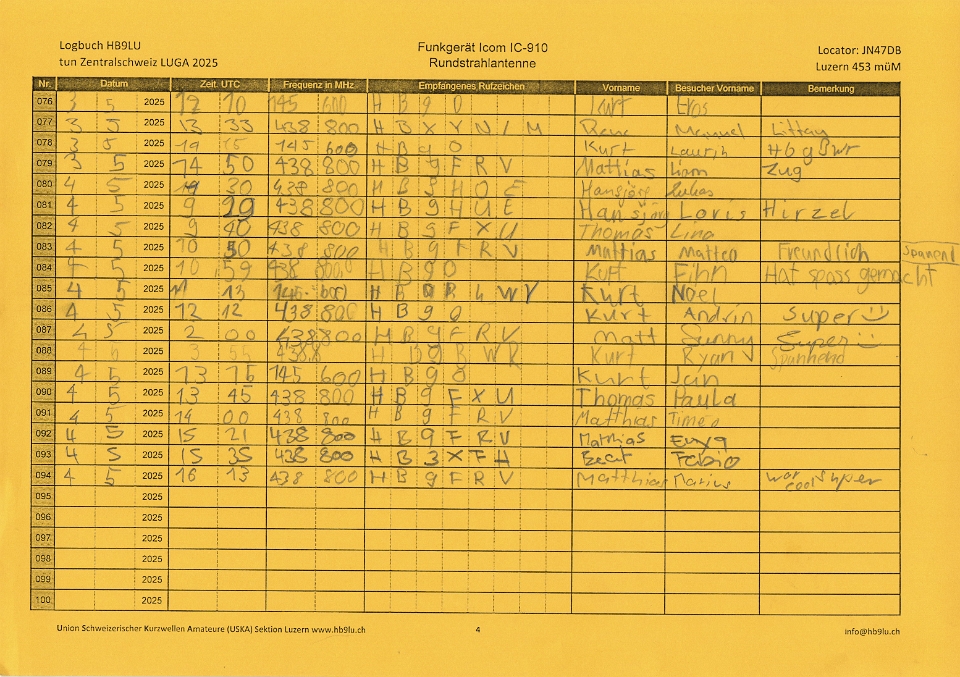 Logbuch HB9LU
tun Zentralschweiz LUGA 2025
Funkgerät Icom IC-910
Rundstrahlantenne
Locator: JN47DB
Luzern 453 müM
Nr. Datum Zeit UTC Frequenz in MHz Empfangenes Rufzeichen Vorname Besucher Vorname Bemerkung
076 3 5 2025 12 10 145 600 H B 9 O Kurt Eros
077 3 5 2025 13 33 438 800 H B X Y N I M Rene Manuel Littau
078 3 5 2025 14 15 145 600 H B 9 O Kurt Laurin Hb9Bwr
079 3 5 2025 14 50 438 800 H B 9 F R V Mattias Liam Zug
080 4 5 2025 30 438 800 H B 9 H O E Hansjörg Lukas
081 4 5 2025 9 29 438 800 H B 9 H U E Hansjörg Loris Hirzel
082 4 5 2025 9 40 438 800 H B 9 F X U Thomas Lina
083 4 5 2025 10 50 438 800 H B 9 F R V Mattias Matteo Freundlich Spanend
084 4 5 2025 10 59 438 800 H B 9 O Kurt Finn Hat spass gemacht
085 4 5 2025 11 13 145 600 H B W Y Kurt Noel
086 4 5 2025 12 12 438 800 H B 9 O Kurt Andrin Super
087 4 5 2025 2 00 438 800 H B 9 F R V Matt Sunny Super
088 4 2025 3 55 438.8 H B 9 B W R Kurt Ryan Spannend
089 4 5 2025 13 15 145 600 H B 9 O Kurt Jan
090 4 5 2025 13 45 438 800 H B 9 F X U Thomas Paula
091 4 5 2025 14 00 438 800 H B 9 F R V Matthias Timeo
092 4 5 2025 15 21 438 800 H B 9 F R V Mathias
093 4 5 2025 15 35 438 800 H B 3 X F H Beat Fabio
094 4 5 2025 16 13 438 800 H B 9 F R V Matthias Marius war cool super
095 2025
096 2025
097 2025
098 2025
099 2025
100 2025
Union Schweizerischer Kurzwellen Amateure (USKA) Sektion Luzern www.hb9lu.ch
4
info@hb9lu.ch